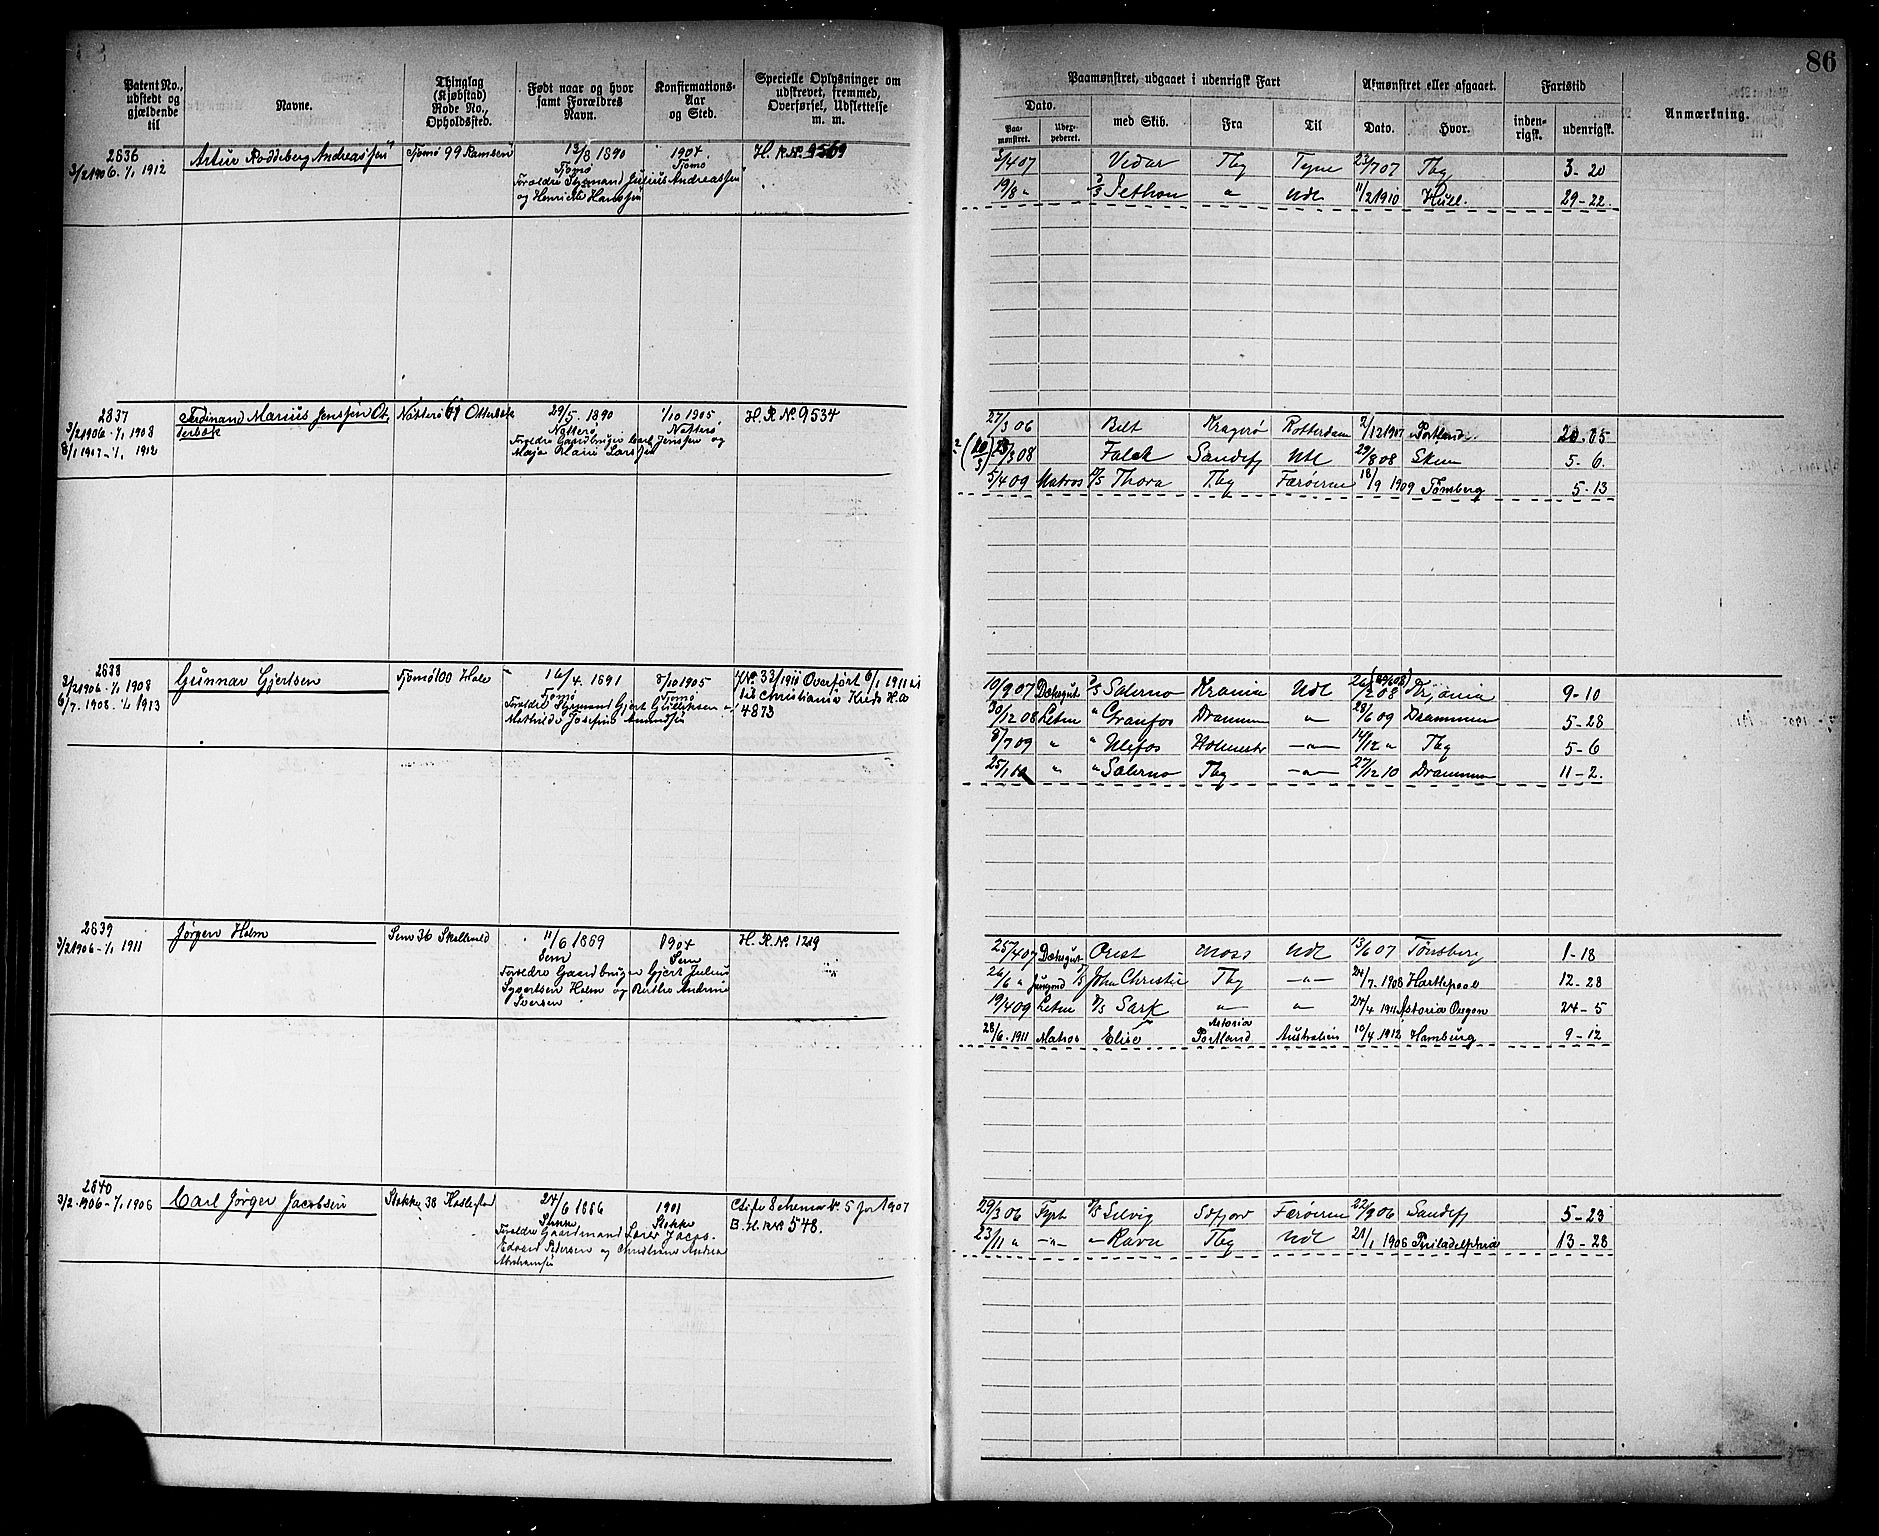 86
Patent No., udstedt og gjældende til
Navne.
Thinglag (Kjøbstad) Rode No., Opholdssted.
Født naar og hvor samt Forældres Navn.
Konfirmations-Aar og Sted.
Specielle Oplysninger om udskrevet, fremmed, Overførsel, Udslettelse m. m.
Paamønstret, udgaaet i udenrigsk Fart
Afmønstret eller afgaaet.
Fartstid
Anmærkning.
Dato.
Paa-mønstret.
med Skib.
Fra
Til
Dato.
Hvor.
inden-rigsk.
udenrigsk.
2836
3/2 1906 - 1/1 1912
Artur Roddeberg Andreassen
Tjømø 99
13/8 1890
Tjømø
Forældre Styrmand Julius Andreassen
og Henriette Hanssen
1904
Tjømø
H. R. No. 9569
5/4 07 Vidar Tbg Tyne 23/7 07 Tbg 3-20
19/8 " Sethon " Udl 11/2 1910 Hull. 29-22.
2837
3/2 1906 - 1/1 1908
8/1 1907 - 1/1 1912
Ferdinand Marius Jenssen Ot-
terbæk
Nøtterø 61 Otterbæk
29/5. 1890
Nøtterø
Forældre Gaardbruger Carl Jenssen og
Maja Marie Larssen
1/10 1905
Nøtterø
H. R. No. 9534
27/3 06 Belt Kragerø Rotterdam 2/12 1907 Portland. 20-05
23/3 08 Falk Sandefj Udl 29/8 08 Skien 5-6.
5/4 09 Matros D/S Thora Tbg Færøerne 18/9 1909 Tønsberg 5-13
2838
3/2 1906 - 1/1 1908
6/7. 1908 - 1/1 1913
Gunnar Gjertsen
Tjømø 100
16/4. 1891
Tjømø
Forældre Styrmand Gjert Gulliksen og
Mathilde Josefine Amundsen
8/10 1905
Tjømø
No. 33/1911 Overført 6/1 1911 til
Christiania Kreds H. A
4873
10/9 07 Dæksgut D/S Salerno Krania Udl 26/2 08 Krjania 9-10
30/12 08 Letm " Granfos Drammen " 28/6 09 Drammen 5-28
8/7 09 " " Ulefos Holmestr -"- 14/12 " Tbg 5-6
25/1 10 " " Salerno Tbg -"- 27/12 10 Drammen 11-2.
2839
3/2 1906 - 1/1 1911
Jørgen Holm
Sem 36
11/6 1889
Sem
Forældre Gaardbruger Gjert Julius
Syvertsen Holm og Berthe Andrine
Iversen
1904
Sem
H. R. No. 1219
25/4 07 Dæksgut Orest Moss Udl 13/6 07 Tønsberg 1-18
26/6 " Jungmd John Christie Tbg -"- 24/7. 1908 Hartlepool 12-28
19/4 09 Letm D/S Sark -"- " 24/4 1911 Astoria Oregon 24-5
28/6. 1911 Matros Elise Astoria Portland Australien 10/4 1912 Hamburg 9-12
2840
3/2 1906 - 1/1 1906
Carl Jørgen Jacobsen
Stokke 38
24/6 1886
Stokke
Forældre Gaardmand Sører Jacob.
Edvard Pedersen og Christiane Andrea
Abrahamsen
1901
Stokke
Schema No. 5 for 1907
B. H. R. No 548.
29/3 06 Fyrb D/S Selvig Sdfjord Færøerne 22/9 06 Sandefj 5-23
23/11 " -"- " Ravn Tbg Udl 21/1 1908 Philadelphia 13-28